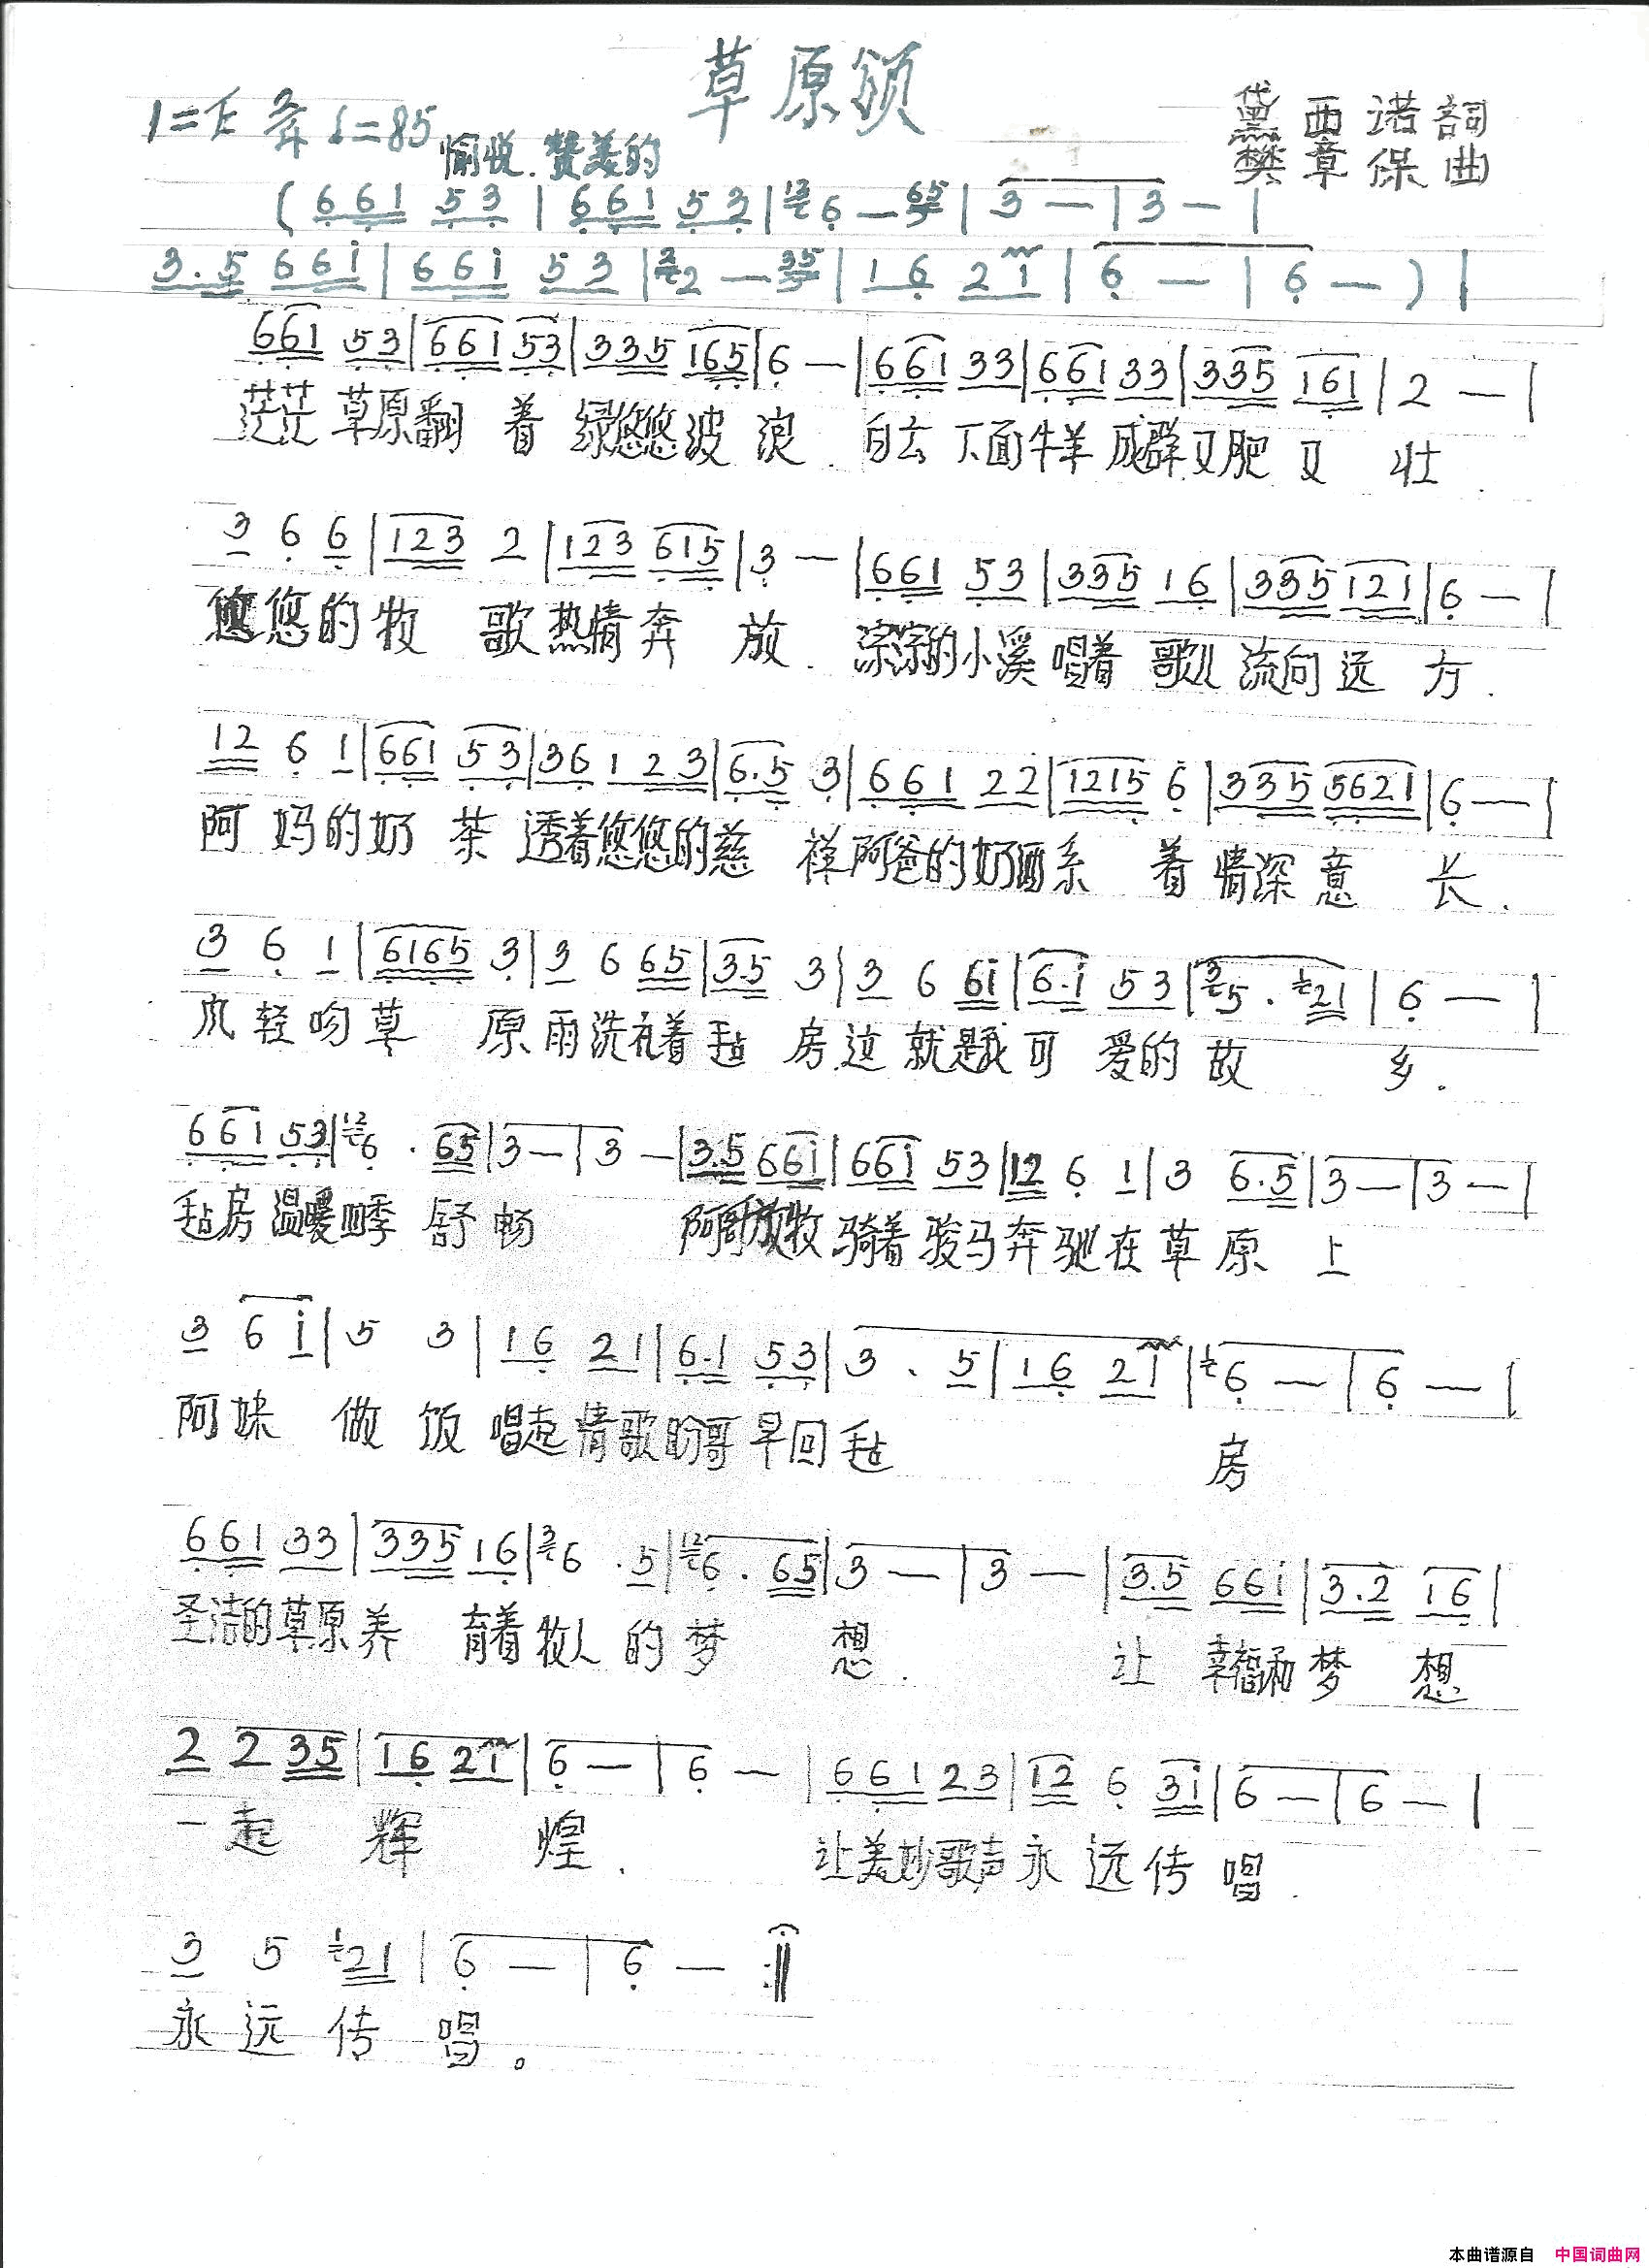 草原颂
1=E 2/4 ♩=85 愉悦.赞美的
黛西诺詞
樊章保曲
(661 53|661 53|6—65|3—|3—|
3.5 66i|66i 53|2—35|16 21|6—|6—)|
661 53|661 53|335 165|6—|661 33|661 33|335 161|2—|
茫茫草原翻着绿悠悠波浪.白云下面牛羊成群又肥又壮.
3 6 6|123 2|123 615|3—|661 53|335 16|335 121|6—|
悠悠的牧歌热情奔放.淙淙的小溪唱着歌儿流向远方.
12 6 1|661 53|36 123|6.5 3|661 22|1215 6|335 5621|6—|
阿妈的奶茶透着悠悠的慈祥阿爸的奶酒系着情深意长.
3 6 1|6165 3|3 6 65|3.5 3|3 6 6i|6.i 53|5.21|6—|
风轻吻草原雨洗礼着毡房.这就是我可爱的故乡.
661 53|6.65|3—|3—|3.5 66i|66i 53|12 6 1|3 6.5|3—|3—|
毡房温暖四季舒畅 阿哥放牧骑着骏马奔驰在草原上
3 6 i|5 3|16 21|6.1 53|3.5|16 21|6—|6—|
阿妹做饭唱起情歌盼哥早回毡房
661 33|335 16|6.5|6.65|3—|3—|3.5 66i|3.2 16|
圣洁的草原养育着牧人的梦想. 让幸福和梦想
2 2 35|16 21|6—|6—|661 23|12 6 3i|6—|6—|
一起辉煌. 让美妙歌声永远传唱.
3 5 21|6—|6—:‖
永远传唱。
本曲谱源自 中国词曲网